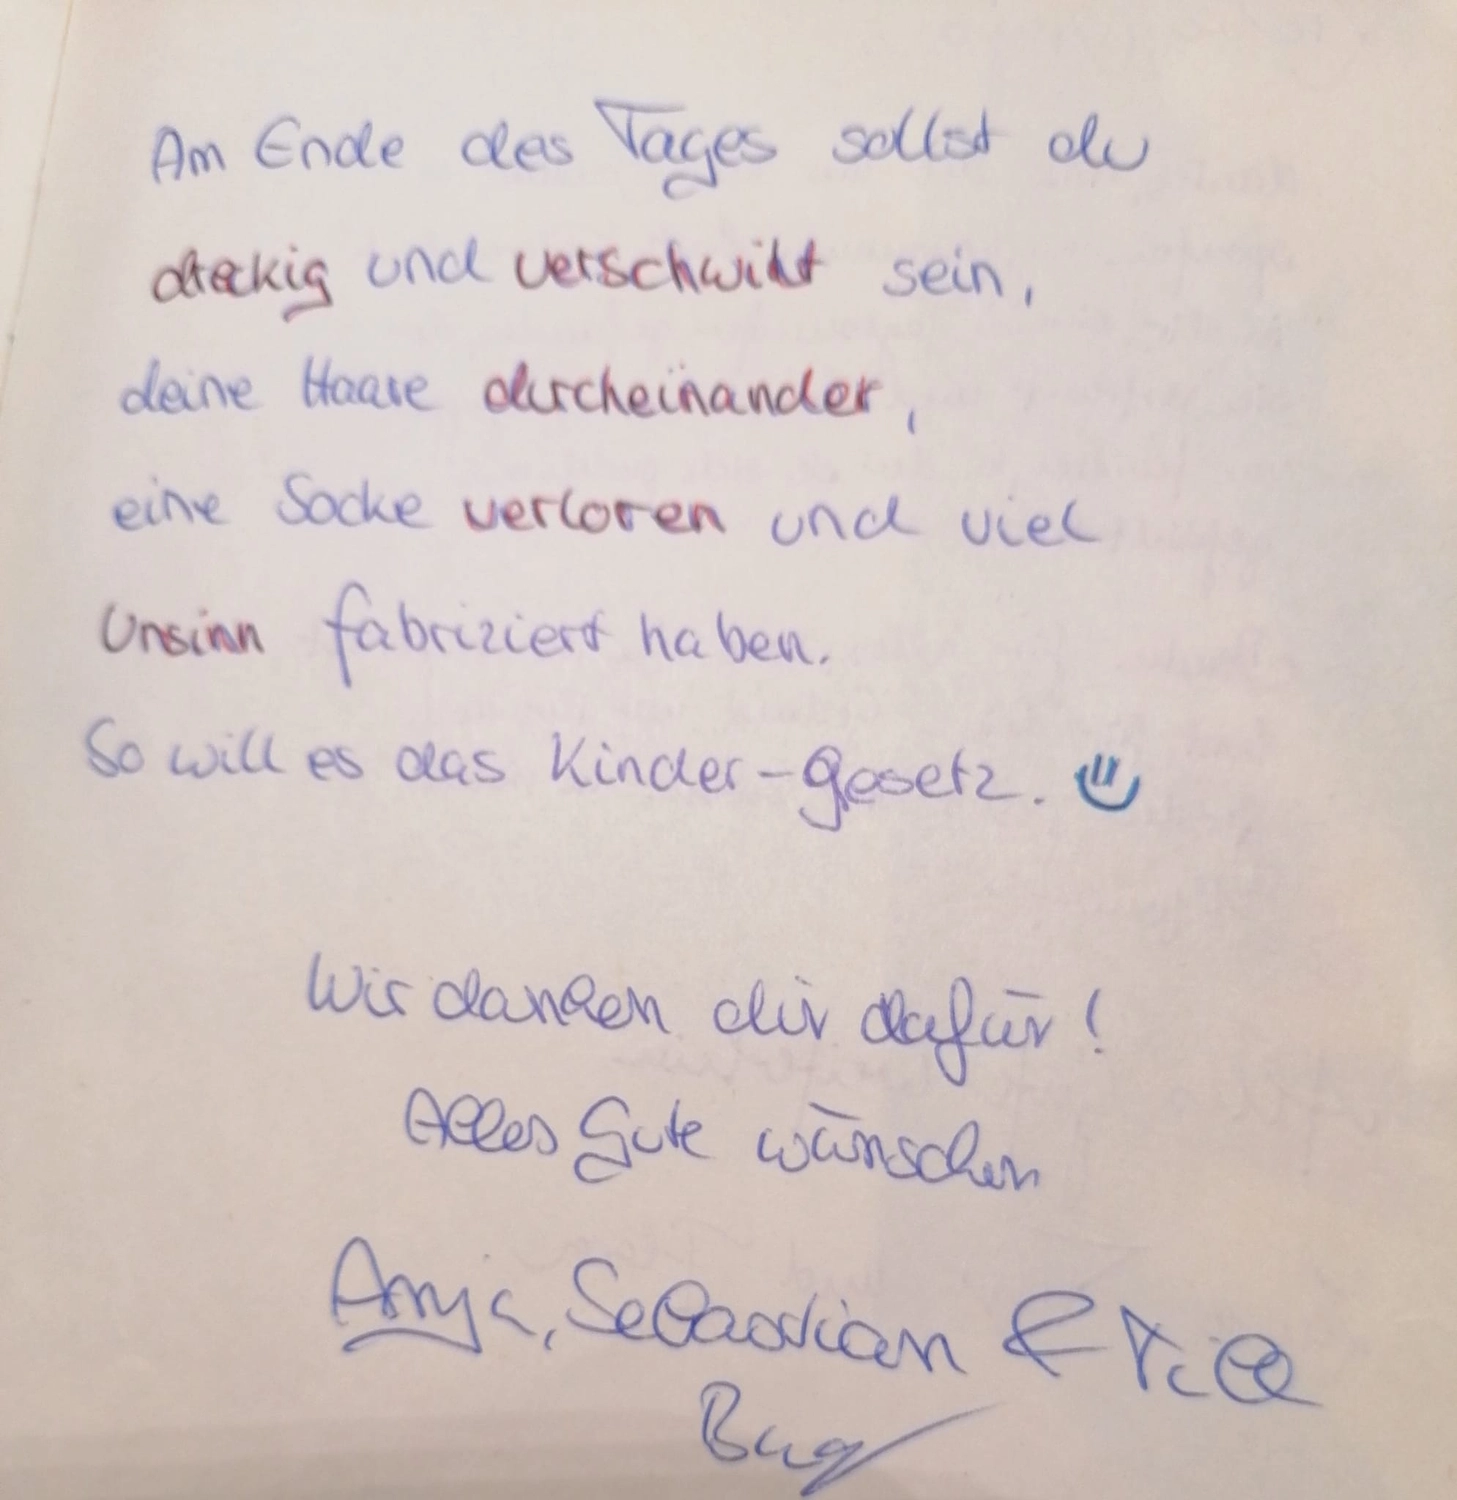 Am Ende des Tages sollst du
dreckig und verschwitzt sein,
deine Haare durcheinander,
eine Socke verloren und viel
Unsinn fabriziert haben.
So will es das Kinder-gesetz.
Wir danken dir dafür!
Alles Gute wünschen
Anja, Sebastian & Till